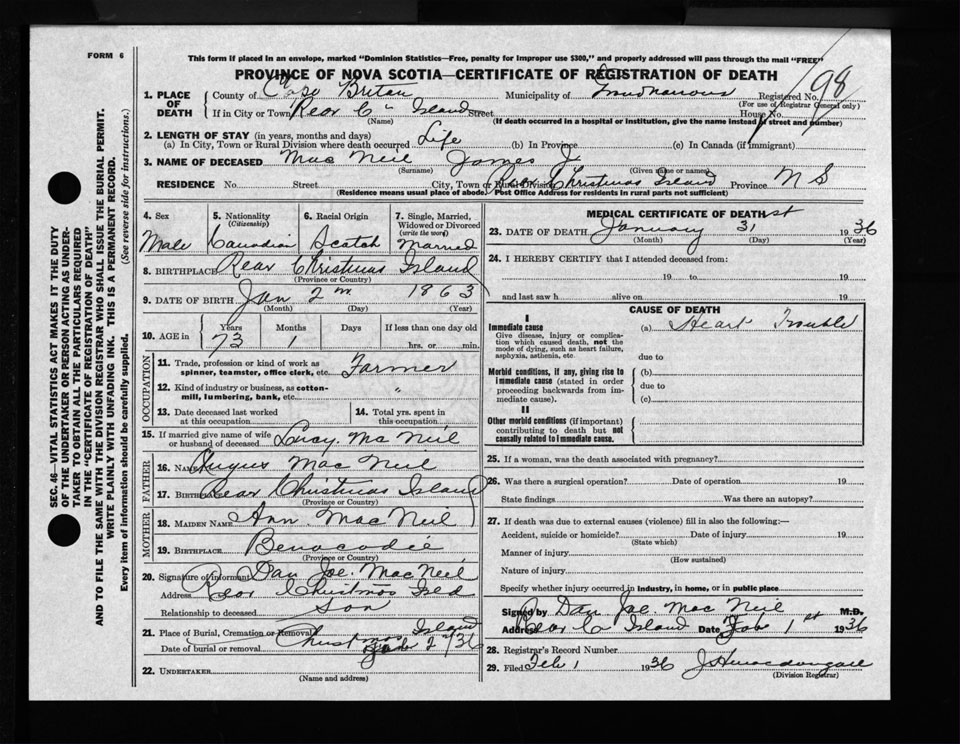 FORM 6
This form if placed in an envelope, marked "Dominion Statistics—Free, penalty for improper use $300," and properly addressed will pass through the mail "FREE"
PROVINCE OF NOVA SCOTIA—CERTIFICATE OF REGISTRATION OF DEATH
98
1. PLACE OF DEATH
County of Cape Breton Municipality of Registered No.
(For use of Registrar General only)
If in City or Town Rear C. Island Street House No.
(Name) (If death occurred in a hospital or institution, give the name instead of street and number)
2. LENGTH OF STAY (in years, months and days)
(a) In City, Town or Rural Division where death occurred Life (b) In Province (c) In Canada (if immigrant)
3. NAME OF DECEASED Mac Neil James J.
(Surname) (Given name or names)
RESIDENCE No. Street City, Town or Rural Division Rear Christmas Island Province N S
(Residence means usual place of abode. Post Office Address for residents in rural parts not sufficient)
4. Sex
Male
5. Nationality
(Citizenship)
Canadian
6. Racial Origin
Scotch
7. Single, Married, Widowed or Divorced
(write the word)
Married
8. BIRTHPLACE Rear Christmas Island
(Province or Country)
9. DATE OF BIRTH Jan 2 1863
(Month) (Day) (Year)
10. AGE in
Years Months Days If less than one day old
73 1 hrs. or min.
OCCUPATION
11. Trade, profession or kind of work as spinner, teamster, office clerk, etc. Farmer
12. Kind of industry or business, as cotton-mill, lumbering, bank, etc. "
13. Date deceased last worked at this occupation
14. Total yrs. spent in this occupation
15. If married give name of wife or husband of deceased Lucy. Mac Neil
FATHER
16. NAME Mac Neil
17. Birthplace Rear Christmas Island
(Province or Country)
MOTHER
18. MAIDEN NAME Ann. Mac Neil
19. BIRTHPLACE Benacadie
(Province or Country)
20. Signature of informant Dan Joe. Mac Neil
Address Rear Christmas Isld
Relationship to deceased Son
21. Place of Burial, Cremation or Removal Christmas Island
Date of burial or removal Feb 2/36
22. UNDERTAKER
(Name and address)
MEDICAL CERTIFICATE OF DEATH
23. DATE OF DEATH January 31st 1936
(Month) (Day) (Year)
24. I HEREBY CERTIFY that I attended deceased from:
19 to 19
and last saw h alive on 19
CAUSE OF DEATH
I
Immediate cause
Give disease, injury or complication which caused death, not the mode of dying, such as heart failure, asphyxia, asthenia, etc.
(a) Heart Trouble
due to
Morbid conditions, if any, giving rise to immediate cause (stated in order proceeding backwards from immediate cause).
(b)
due to
(c)
II
Other morbid conditions (if important) contributing to death but not causally related to immediate cause.
25. If a woman, was the death associated with pregnancy?
26. Was there a surgical operation? Date of operation 19
State findings Was there an autopsy?
27. If death was due to external causes (violence) fill in also the following:—
Accident, suicide or homicide? Date of injury 19
(State which)
Manner of injury
(How sustained)
Nature of injury
Specify whether injury occurred in industry, in home, or in public place
Signed by Dan Joe. Mac Neil M.D.
Address Rear C. Island Date Feb 1st 1936
28. Registrar's Record Number
29. Filed Feb 1 1936
(Division Registrar)
SEC. 46—VITAL STATISTICS ACT MAKES IT THE DUTY
OF THE UNDERTAKER OR PERSON ACTING AS UNDER-
TAKER TO OBTAIN ALL THE PARTICULARS REQUIRED
IN THE "CERTIFICATE OF REGISTRATION OF DEATH"
AND TO FILE THE SAME WITH THE DIVISION REGISTRAR WHO SHALL ISSUE THE BURIAL PERMIT.
WRITE PLAINLY WITH UNFADING INK. THIS IS A PERMANENT RECORD.
Every item of information should be carefully supplied. (See reverse side for instructions.)